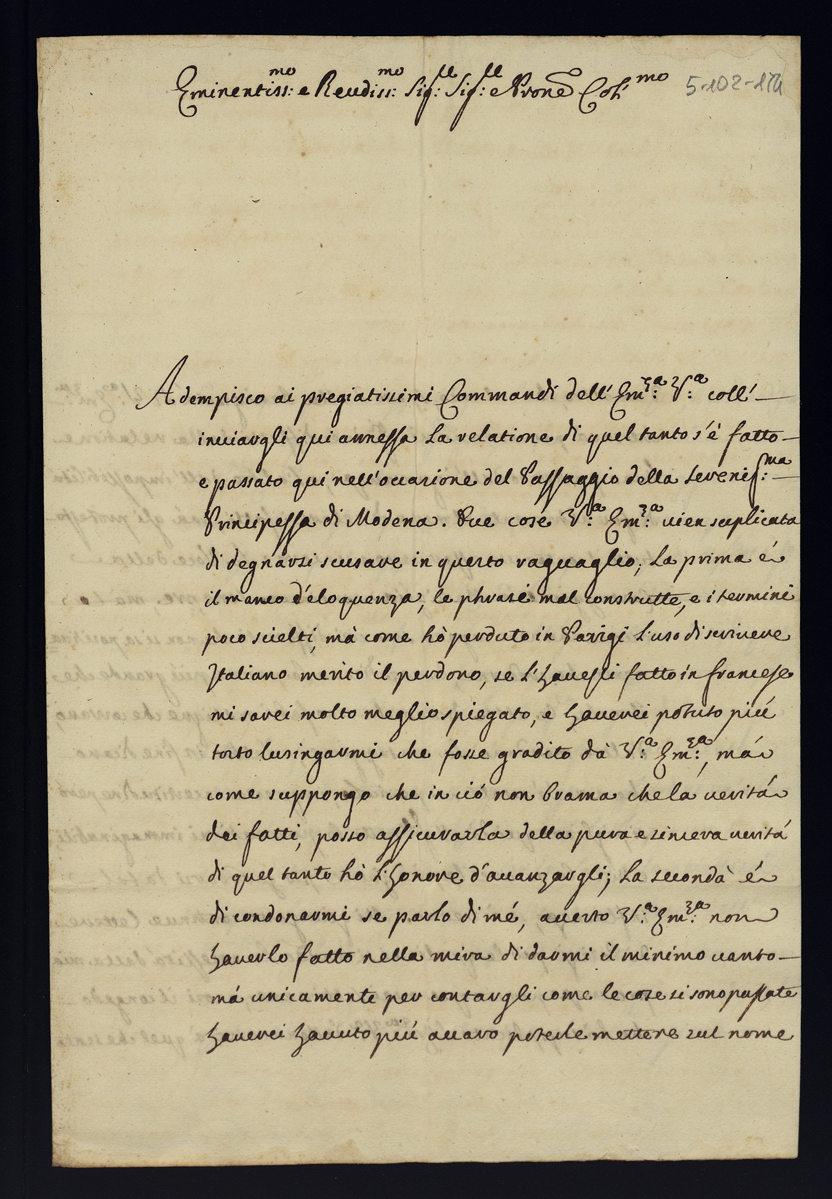 Eminentiss:mo e Reudiss:mo Sig:re Sig:re e Prone Col:mo 5-102-114
Adempisco ai pregiatissimi Commandi dell' Em:za V:a coll'
inviargli qui annessa la relatione di quel tanto s'é fatto
e passato qui nell'occasione del Passaggio della Sereniss:ma
Principessa di Modena. Due cose V:a Em:za vien suplicata
di degnarsi scusare in questo raguaglio; la prima é
il manco d'eloquenza, le phrasi mal construtte, e i termini
poco scielti, má come hó perduto in Parigi l'uso di scrivere
Italiano merito il perdono, se l'havessi fatto in francese
mi sarei molto meglio spiegato, e haverei potuto piú
tosto lusingarmi che fosse gradito dá V:a Em:za, má
come suppongo che in ció non brama che la veritá
dei fatti, posso assicurarla della pura e sincera veritá
di quel tanto hó l'honore d'avanzargli; la secondá é
di condonarmi se parlo di mé, averto V:a Em:za non
haverlo fatto nella mira di darmi il minimo vanto
má unicamente per contargli come le cose si sono passate
haverei havuto piú a caro poterle mettere sul nome